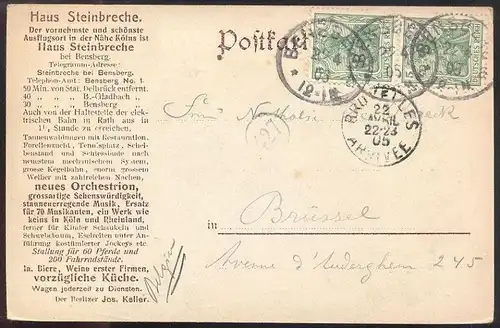 Haus Steinbreche.
Der vornehmste und schönste
Ausflugsort in der Nähe Kölns ist
Haus Steinbreche
bei Bensberg.
Telegramm-Adresse:
Steinbreche bei Bensberg.
Telephon-Amt: Bensberg No. 1.
50 Min. von Stat. Dellbrück entfernt.
40 „ „ „ B.-Gladbach „
30 „ „ „ Bensberg „
Auch von der Haltestelle der elek-
trischen Bahn in Rath aus in
1¼ Stunde zu erreichen.
Tannenwaldungen mit Restauration.
Forellenzucht, Tennisplatz, Schei-
benstand und Schiessbude nach
neuestem mechanischem System,
grosse Kegelbahn, enorm grossem
Weiher mit zahlreichen Nachen,
neues Orchestrion,
grossartige Sehenswürdigkeit,
staunenerregende Musik, Ersatz
für 70 Musikanten, ein Werk wie
keins in Köln und Rheinland,
ferner für Kinder Schaukeln und
Schwebebaum, Eselreiten unter An-
führung kostümierter Jockeys etc.
Stallung für 60 Pferde und
200 Fahrradstände.
Ia. Biere, Weine erster Firmen,
vorzügliche Küche.
Wagen jederzeit zu Diensten.
Der Besitzer Jos. Keller.
Postkarte
12-1N
BRUXELLES
22
AVRIL
22-23
05
ARRIVEE
in Brüssel
Avenue d'Auderghem 245
Belgien